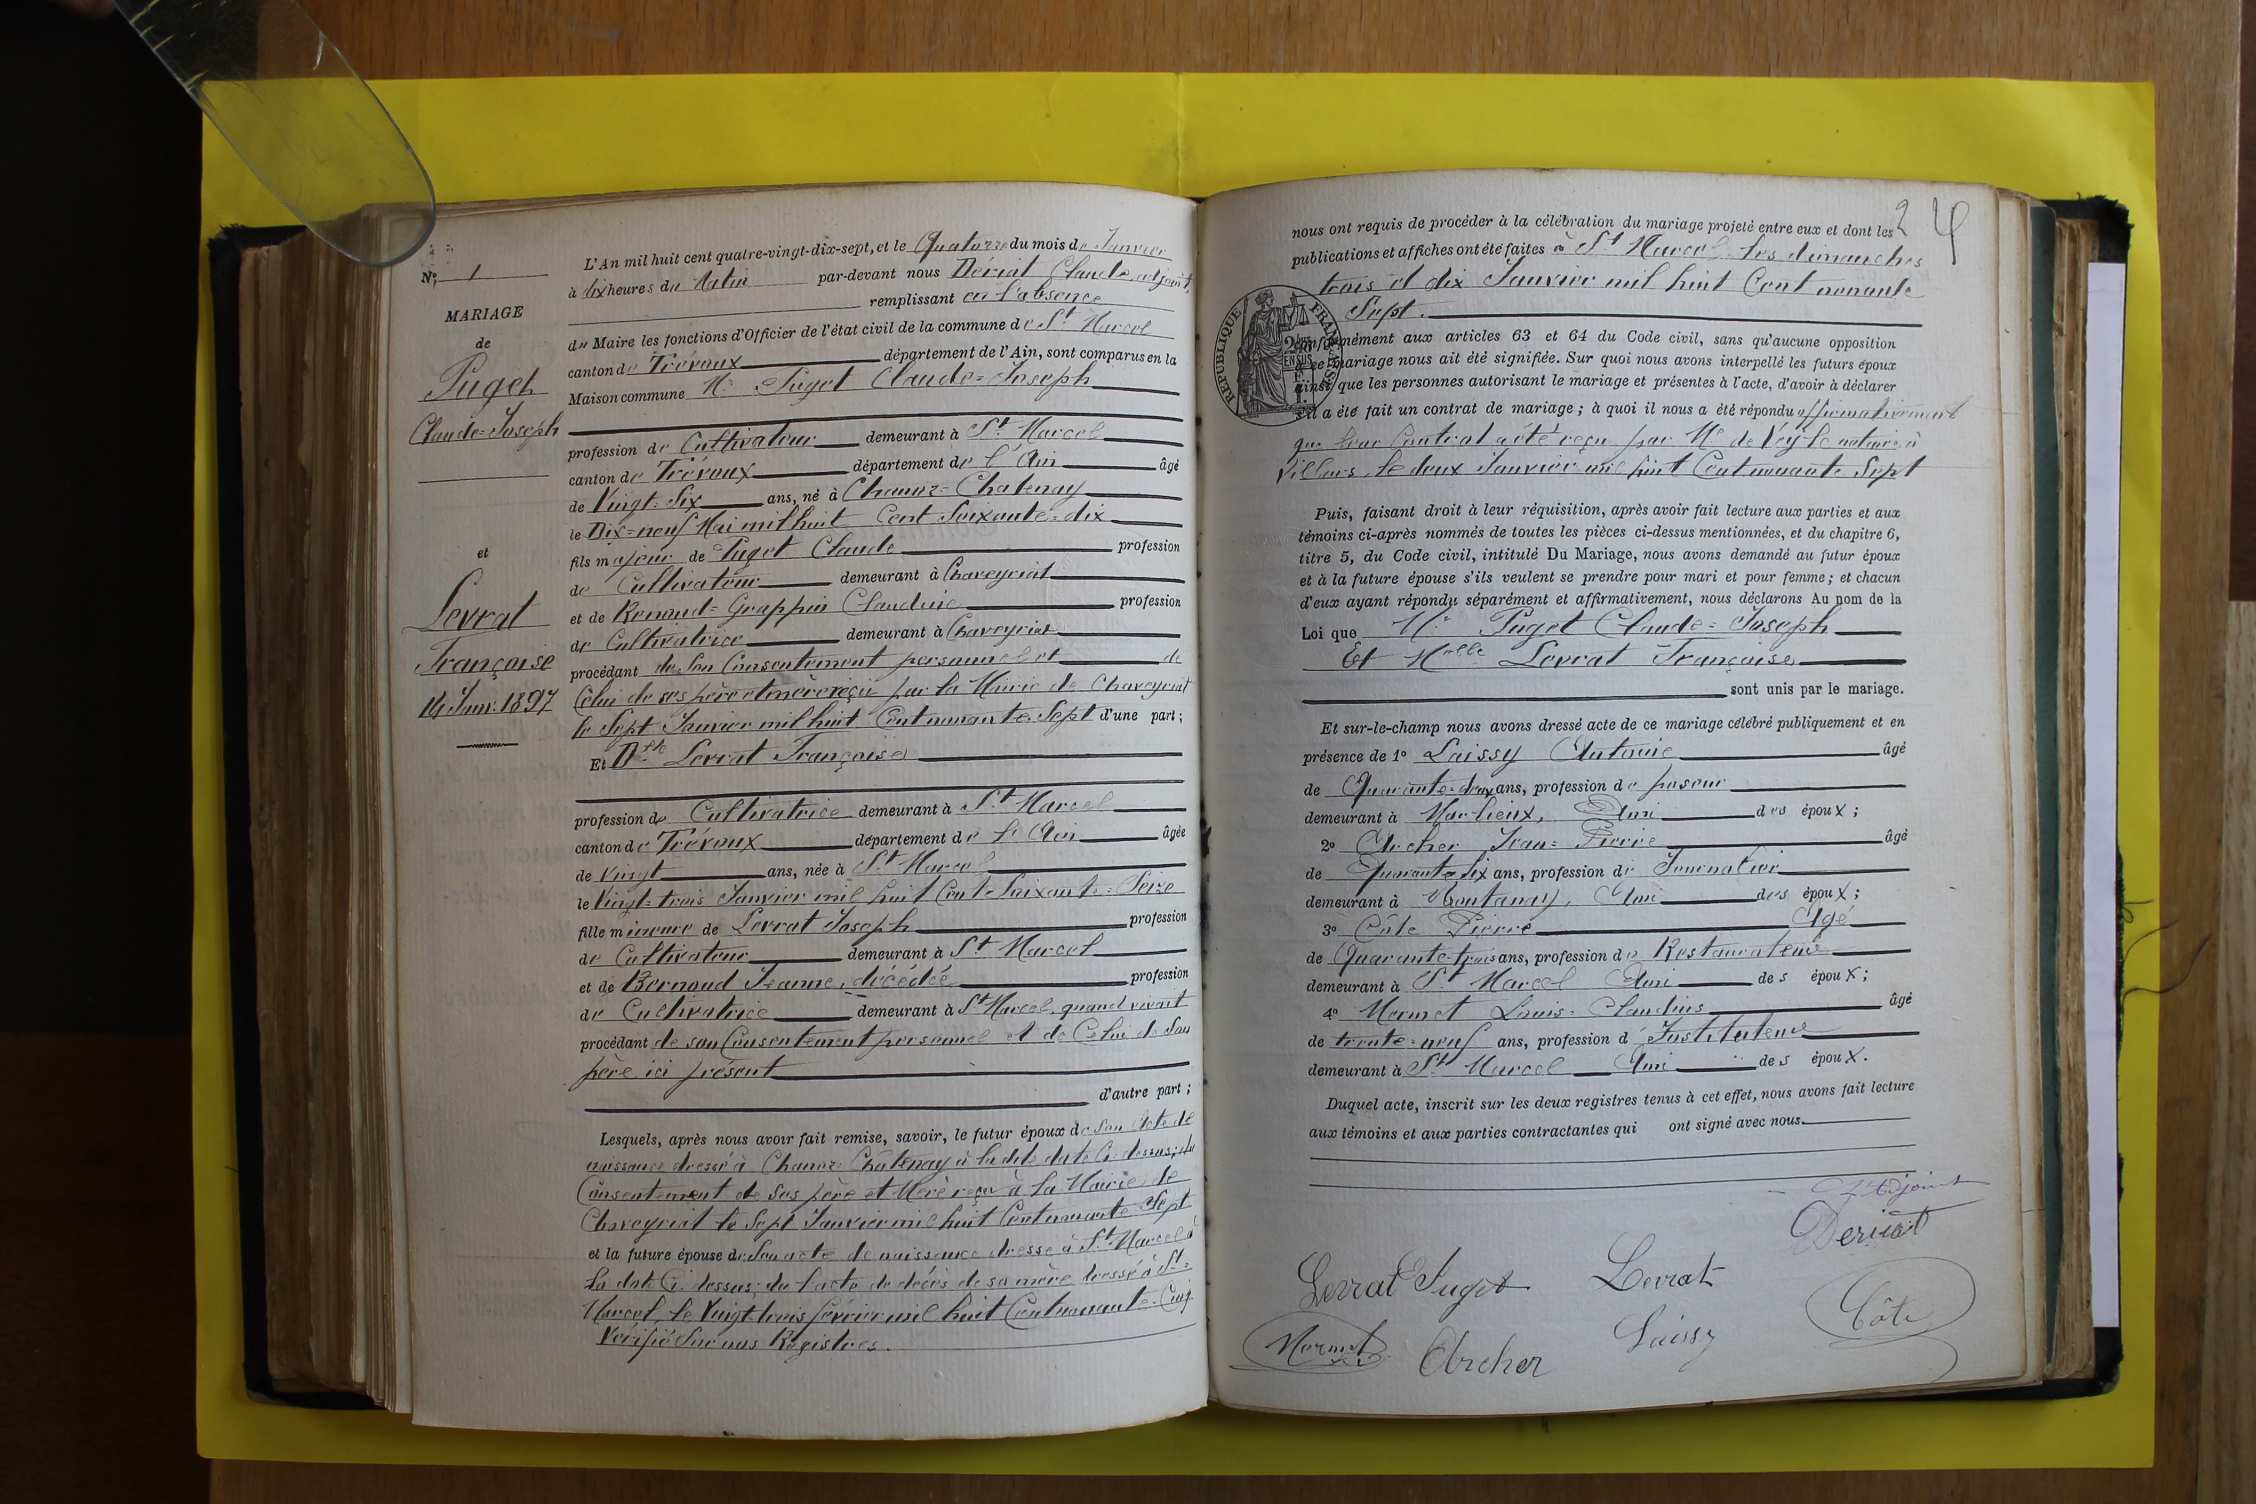 N° 1
MARIAGE
de
Puget
Claude=Joseph
et
Levrat
Françoise
14 Janv. 1897
L'An mil huit cent quatre-vingt-dix-sept, et le Quatorze du mois de Janvier
à dix heures du Matin par-devant nous Dériat Claude, adjoint,
remplissant en l'absence
du Maire les fonctions d'Officier de l'état civil de la commune de St Marcel
canton de Trévoux département de l'Ain, sont comparus en la
Maison commune Mr Puget Claude=Joseph
profession de Cultivateur demeurant à St Marcel
canton de Trévoux département de l'Ain âgé
de Vingt=Six ans, né à Chanoz=Chatenay
le Dix=neuf Mai mil huit Cent Soixante=dix
fils majeur de Puget Claude profession
de Cultivateur demeurant à Chaveyriat
et de Renoud=Grappin Claudine profession
de Cultivatrice demeurant à Chaveyriat
procédant de Son Consentement personnel et de
Celui de ses père et mère reçu par la Mairie de Chaveyriat
le Sept Janvier mil huit Cent nonante Sept d'une part;
Et Dlle Levrat Françoise
profession de Cultivatrice demeurant à St Marcel
canton de Trévoux département de l'Ain âgée
de Vingt ans, née à St Marcel
le Vingt=trois Janvier mil huit Cent Soixante=Seize
fille mineure de Levrat Joseph profession
de Cultivateur demeurant à St Marcel
et de Bernoud Jeanne, décédée profession
de Cultivatrice demeurant à St Marcel, quand vivait
procédant de son Consentement personnel et de Celui de Son
père ici présent
d'autre part;
Lesquels, après nous avoir fait remise, savoir, le futur époux de Son Acte de
naissance dressé à Chanoz Châtenay à la dite date Ci-dessus; du
Consentement de Ses père et Mère reçu à la Mairie de
Chaveyriat le Sept Janvier mil huit Cent nonante Sept
et la future épouse de Son acte de naissance dressé à St Marcel à
la date Ci-dessus; de l'acte de décès de sa mère dressé à St=
Marcel, le Vingt trois février mil huit Cent nonante=Cinq
Vérifié Sur nos Régistres.
2 4
nous ont requis de procéder à la célébration du mariage projeté entre eux et dont les
publications et affiches ont été faites à St Marcel les dimanches
trois et dix Janvier mil huit Cent nonante
Sept.
RÉPUBLIQUE FRANÇAISE
conformément aux articles 63 et 64 du Code civil, sans qu'aucune opposition
à ce mariage nous ait été signifiée. Sur quoi nous avons interpellé les futurs époux
ainsi que les personnes autorisant le mariage et présentes à l'acte, d'avoir à déclarer
s'il a été fait un contrat de mariage; à quoi il nous a été répondu affirmativement
que leur Contrat a été reçu par Me de Veyle notaire à
Villars, le deux Janvier mil huit Cent nonante Sept
Puis, faisant droit à leur réquisition, après avoir fait lecture aux parties et aux
témoins ci-après nommés de toutes les pièces ci-dessus mentionnées, et du chapitre 6,
titre 5, du Code civil, intitulé Du Mariage, nous avons demandé au futur époux
et à la future épouse s'ils veulent se prendre pour mari et pour femme; et chacun
d'eux ayant répondu séparément et affirmativement, nous déclarons Au nom de la
Loi que Mr Puget Claude=Joseph
Et Melle Levrat Françoise
sont unis par le mariage.
Et sur-le-champ nous avons dressé acte de ce mariage célébré publiquement et en
présence de 1° Laissy Antoine âgé
de Quarante=deux ans, profession de poseur
demeurant à Marlieux, Ami des époux;
2° Archer Jean=Pierre âgé
de Quarante Six ans, profession de Journalier
demeurant à Montanay, Ami des époux;
3° Côte Pierre Agé
de Quarante-trois ans, profession de Restaurateur
demeurant à St Marcel Ami des époux;
4° Mermet Louis=Claudius âgé
de trente=neuf ans, profession d'Instituteur
demeurant à St Marcel Ami des époux.
Duquel acte, inscrit sur les deux registres tenus à cet effet, nous avons fait lecture
aux témoins et aux parties contractantes qui ont signé avec nous.
L'Adjoint
Deriat
Levrat Puget Levrat
Côte
Mermet Archer Laissy